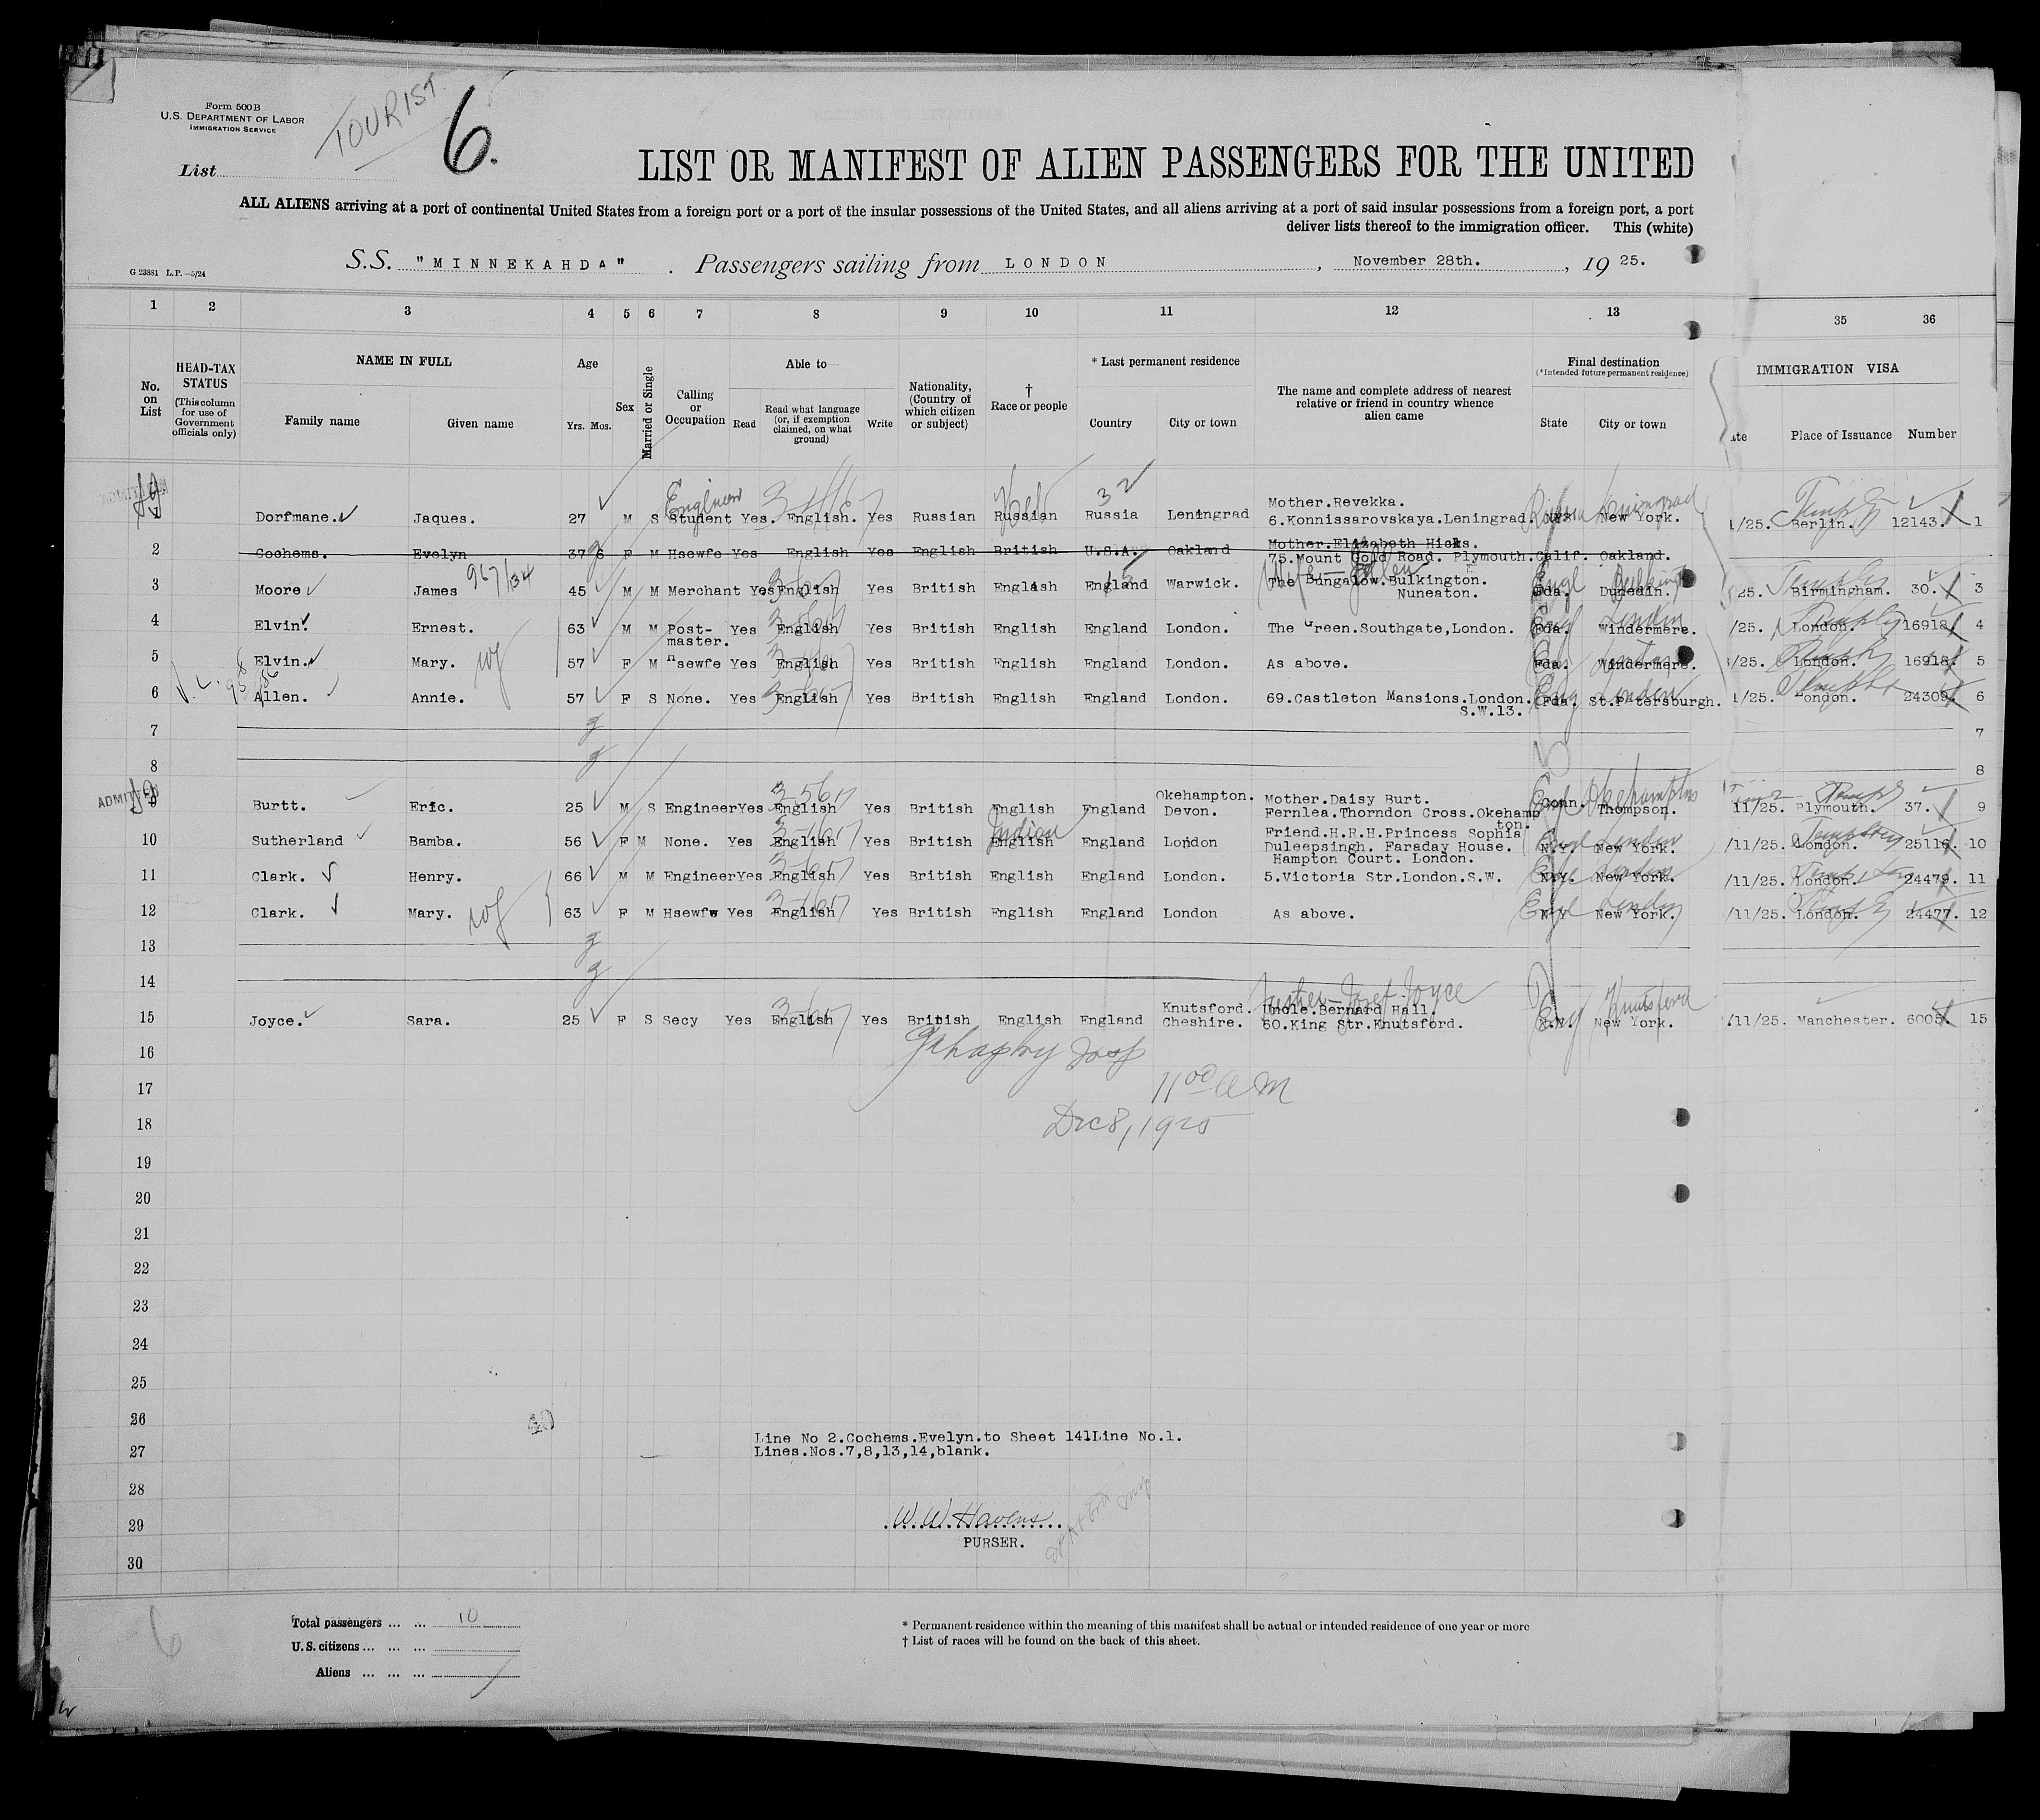 Form 500 B
U.S. DEPARTMENT OF LABOR
IMMIGRATION SERVICE
TOURIST.
6.
List
LIST OR MANIFEST OF ALIEN PASSENGERS FOR THE UNITED
ALL ALIENS arriving at a port of continental United States from a foreign port or a port of the insular possessions of the United States, and all aliens arriving at a port of said insular possessions from a foreign port, a port
deliver lists thereof to the immigration officer. This (white)
G 23881 L.P.—5/24
S.S. "MINNEKAHDA". Passengers sailing from LONDON, November 28th., 19 25.
1 2 3 4 5 6 7 8 9 10 11 12 13 35 36
No. on List
HEAD-TAX STATUS
(This column for use of Government officials only)
NAME IN FULL
Family name
Given name
Age
Yrs. Mos.
Sex
Married or Single
Calling or Occupation
Able to
Read
Read what language (or, if exemption claimed, on what ground)
Write
Nationality, (Country of which citizen or subject)
† Race or people
* Last permanent residence
Country
City or town
The name and complete address of nearest relative or friend in country whence alien came
Final destination
(*Intended future permanent residence)
State
City or town
IMMIGRATION VISA
Place of Issuance
Number
Engineer
32
Mother.Revekka.
Dorfmane. Jaques. 27 M S Student Yes. English. Yes Russian Russian Russia Leningrad 6.Konnissarovskaya.Leningrad. New York. 1/25. Berlin. 12143. 1
Mother.Elizabeth Hicks.
2 Cochems. Evelyn 37 6 F M Hsewfe Yes English Yes English British U.S.A. Oakland 75.Mount Gold Road. Plymouth. Calif. Oakland.
967/134
3 Moore James 45 M M Merchant Yes English Yes British English England Warwick. The Bungalow.Bulkington. Fda. Dunedin. 25. Birmingham. 30. 3
Nuneaton.
4 Elvin. Ernest. 63 M M Post- Yes English Yes British English England London. The Green.Southgate,London. Fda. Windermere. /25. London. 16918. 4
master.
5 Elvin. Mary. 57 F M Hsewfe Yes English Yes British English England London. As above. Fda. Windermere. /25. London. 16918. 5
6 Allen. Annie. 57 F S None. Yes English Yes British English England London. 69.Castleton Mansions.London. Fda. St.Petersburgh. 1/25. London. 24309. 6
S.W.13.
7 7
8 8
ADMITTED
Okehampton. Mother.Daisy Burt.
9 Burtt. Eric. 25 M S Engineer Yes English Yes British English England Devon. Fernlea.Thorndon Cross.Okehamp Conn. Thompson. 11/25. Plymouth. 37. 9
ton.
Indian
Friend.H.R.H.Princess Sophia
10 Sutherland Bamba. 56 F M None. Yes English Yes British English England London Duleepsingh. Faraday House. N.Y. New York. /11/25. London. 25116. 10
Hampton Court. London.
11 Clark. Henry. 66 M M Engineer Yes English Yes British English England London. 5.Victoria Str.London.S.W. N.Y. New York. /11/25. London. 24479. 11
12 Clark. Mary. 63 F M Hsewfw Yes English Yes British English England London As above. N.Y New York. /11/25. London. 24477. 12
13
14
Knutsford. Uncle.Bernard Hall.
15 Joyce. Sara. 25 F S Secy Yes English Yes British English England Cheshire. 60.King Str.Knutsford. N.Y. New York. /11/25. Manchester. 6005. 15
16
17
11 00 AM
18
Dec 8, 1925
19
20
21
22
23
24
25
26
40
Line No 2.Cochems.Evelyn.to Sheet 141Line No.1.
27
Lines.Nos.7,8,13,14,blank.
28
29
W. W. Havens
PURSER.
30
Total passengers ... ... 10
U.S. citizens ... ... ...
Aliens ... ... ...
6
* Permanent residence within the meaning of this manifest shall be actual or intended residence of one year or more
† List of races will be found on the back of this sheet.